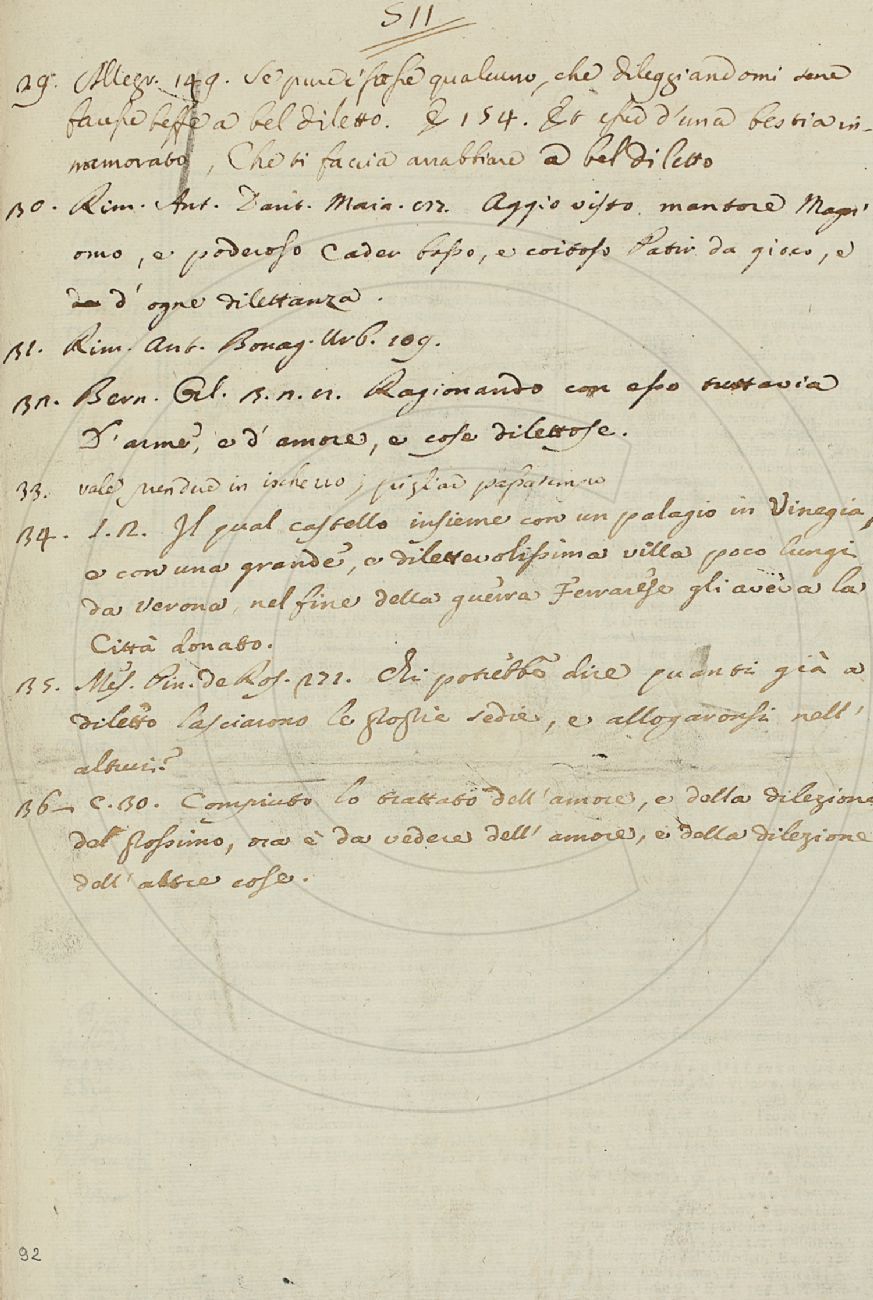 511
29. Allegr. 149. Se pure ci fosse qualcuno, che dileggiandomi sene
facesse beffe a bel diletto. E 154. Et esser d'una bestia in-
namorato, Che ti faccia arrabbiare a bel diletto
30. Rim. Ant. Dant. Maia. Aggio visto mantore Magn'
omo, e poderoso Cader basso, e coitoso Patir da gioco, e
d'ogne dilettanza.
31. Rim. Ant. Bonag. Urb. 109.
32. Bern. Orl. 3. 2. Ragionando con esso tuttavia
D'arme, e d'amore, e cose dilettose.
33. vale prendere in ischerzo, pigliar
34. 1. 2. Il qual castello insieme con un palagio in Vinegia,
e con una grande, e dilettevolissima villa poco lungi
da Verona, nel fine della guerra Ferrarese gli aveva la
Città donato.
35. Mes. Pin. de Ros. 272. Chi potrebbe dire quanti già a
diletto lasciarono le proprie sedie, e allogaronsi nell'
altrui?
36. C. 30. Compiuto lo trattato dell'amore, e della dilezione
del prossimo, ora è da vedere dell'amore, e della dilezione
dell'altre cose.
92